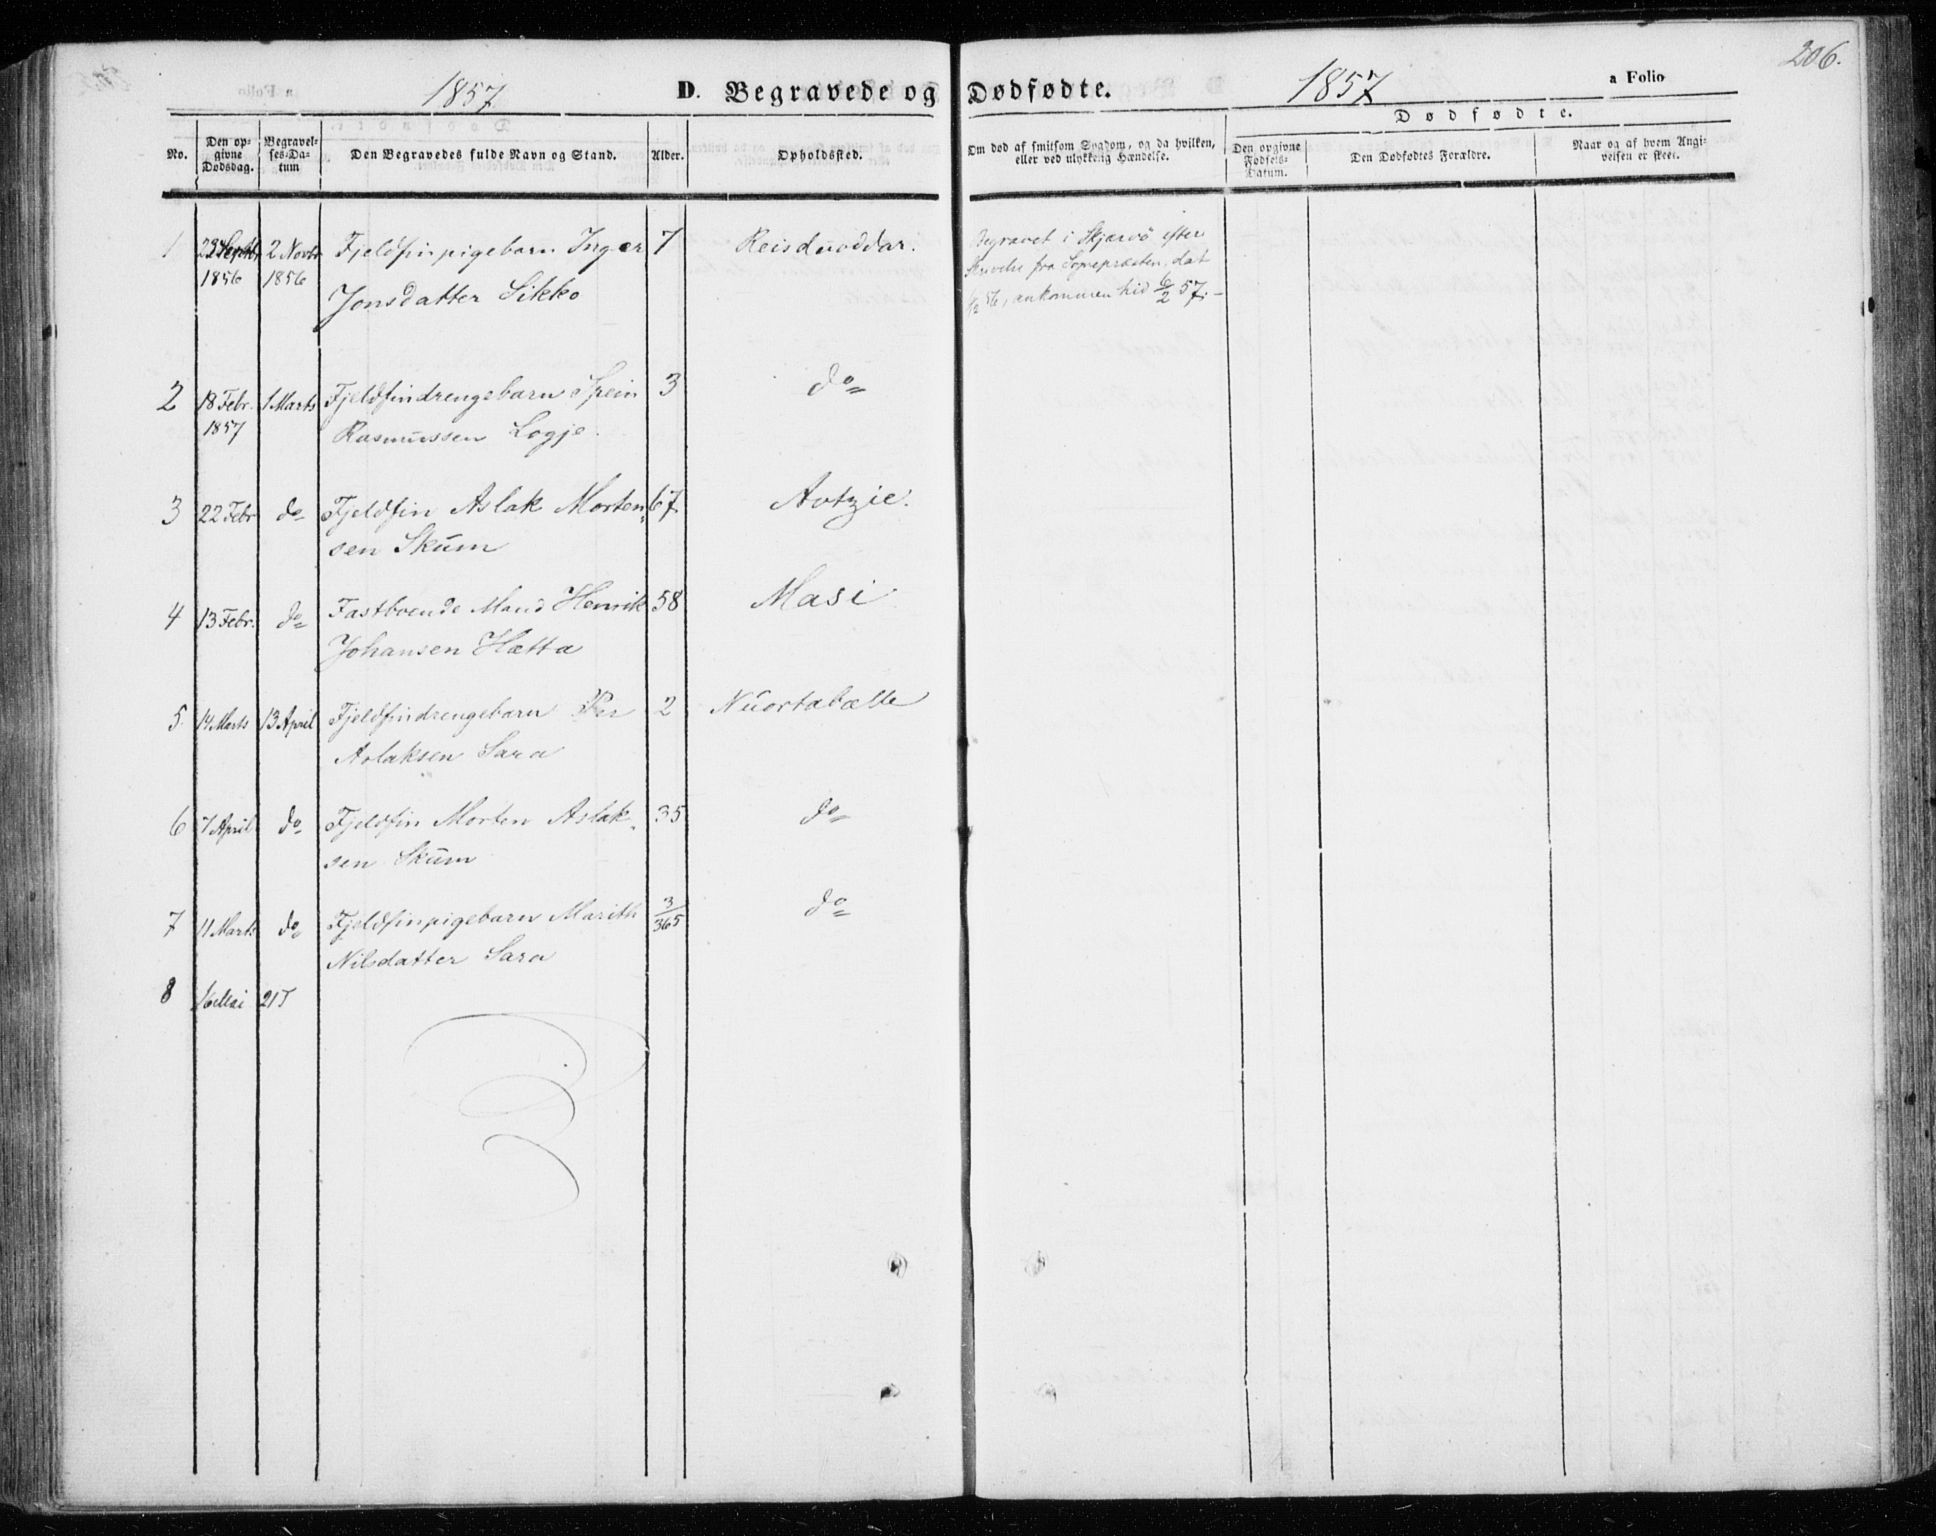 206.
1857 D. Begravede og Dødfødte. 1857 a Folio
Dødfødte.
No. Den opgivne Dødsdag. Begravelses-Datum Den Begravedes fulde Navn og Stand. Alder. Opholdssted. Om død af smitsom Sygdom, og da hvilken, eller ved ulykkelig Hændelse. Den opgivne Fødsels-Datum. Den Dødfødtes Forældre. Naar og af hvem Angivelsen er skeet.
1 Septb. 2 Novb. Fjeldfinpigebarn Inger 7 Reisduoddar. Begravet i Skjervö efter
1856 1856 Jonsdatter Sikko Skrivelse fra Sognepræsten, dat
56, ankommen hid 6/2 57.-
2 18 Febr. 1 Marts Fjeldfindrengebarn Spein 3 do
1857 Rasmussen Logje.
3 22 Febr do Fjeldfin Aslak Morten- 67 Avtzie.
sen Skum
4 13 Febr. do Fastboende Mand Henrik 58 Masi
Johansen Hætta
5 14 Marts 13 April Fjeldfindrengebarn Per 2 Nuortabælle
Aslaksen Sara
6 7 April do Fjeldfin Morten Aslak- 35 do
sen Skum
7 11 Marts do Fjeldfinpigebarn Marith 3/365 do
Nilsdatter Sara
8 16 Mai 21